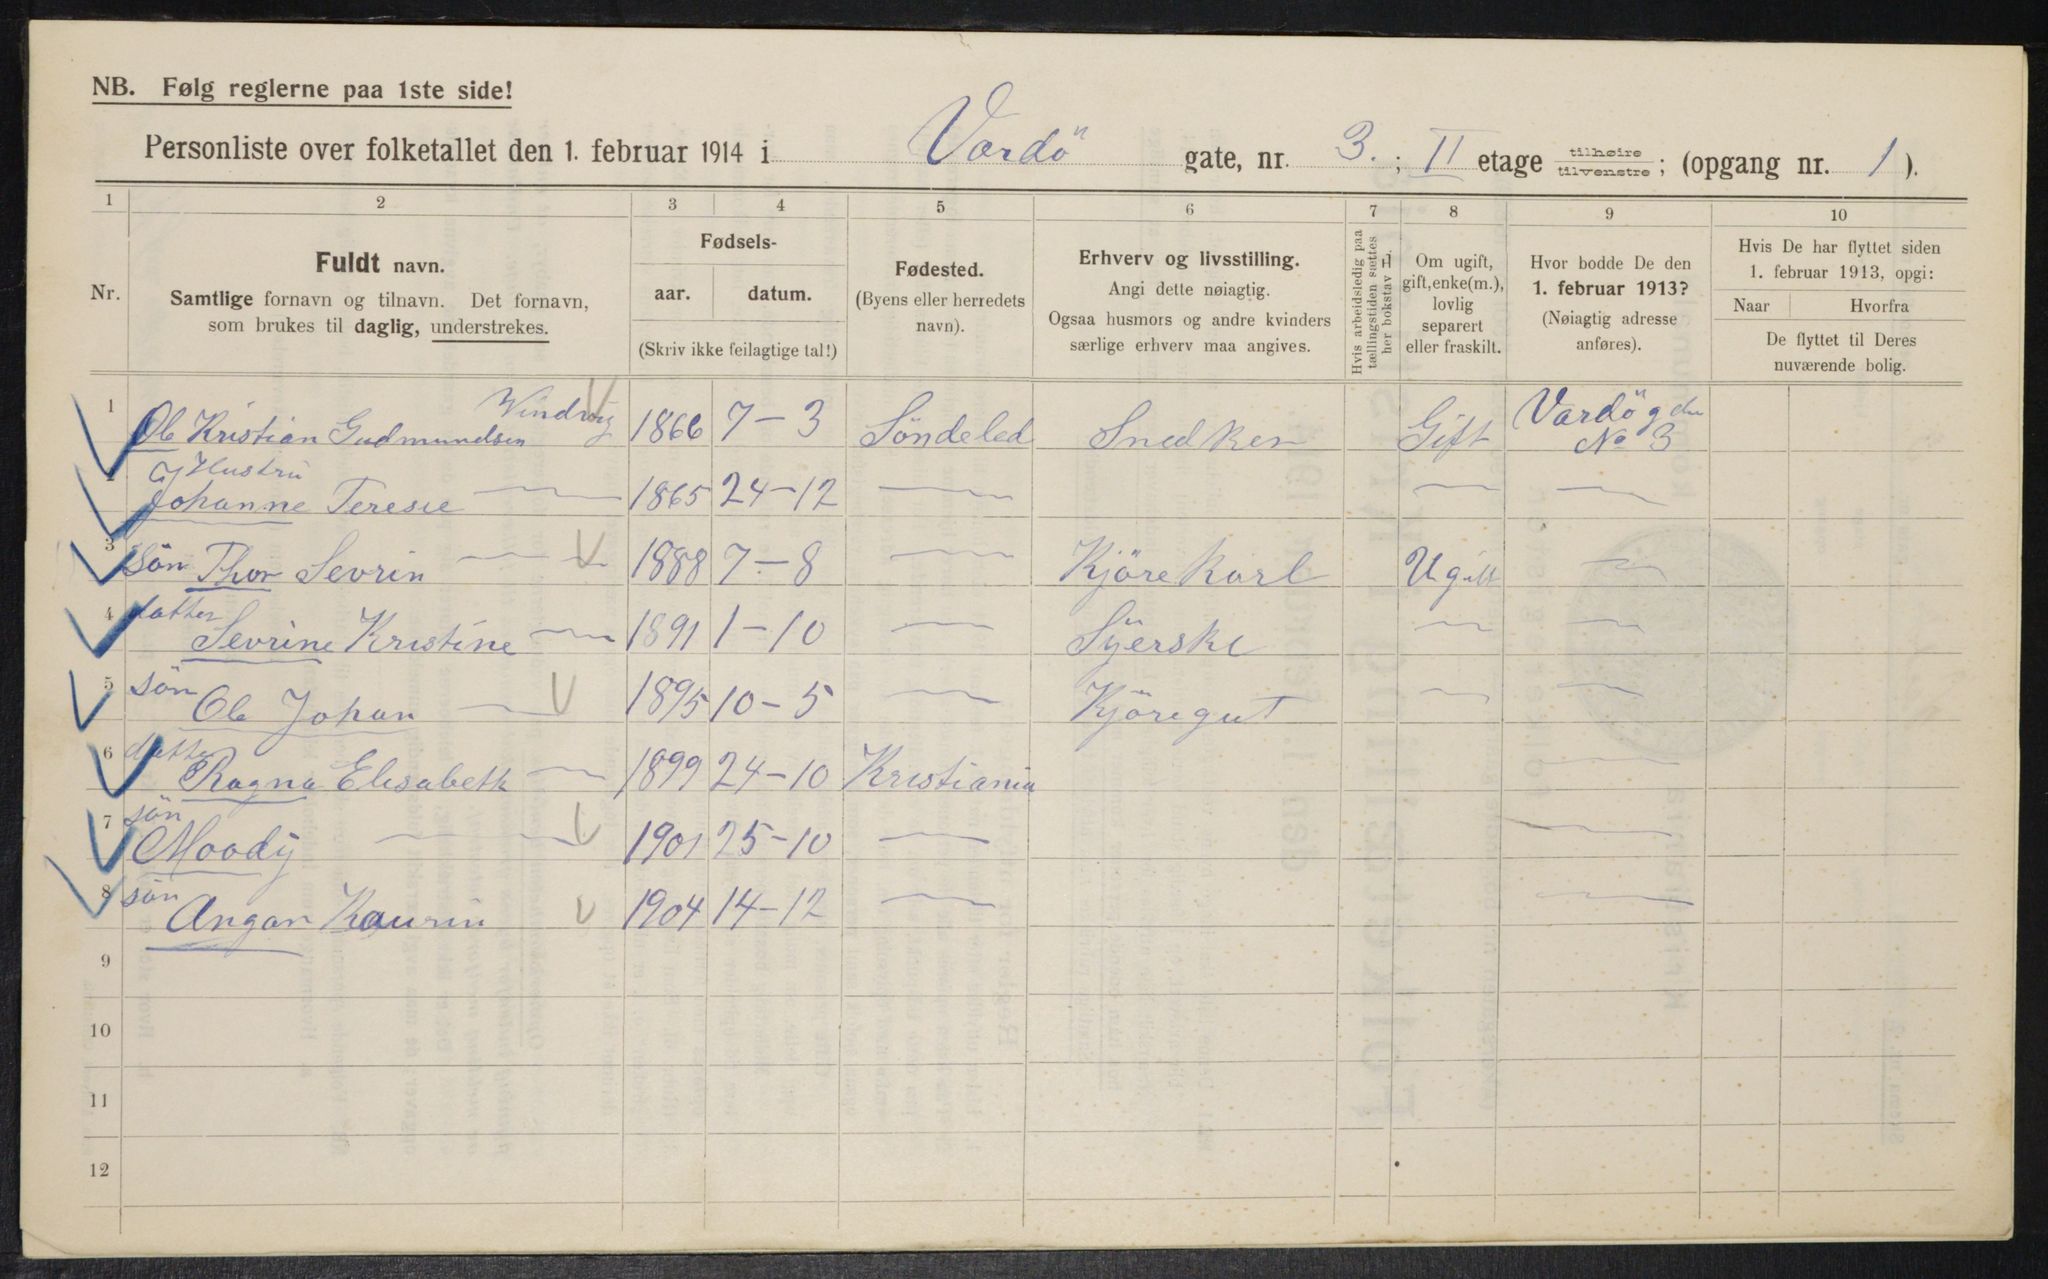 NB. Følg reglerne paa 1ste side!
Personliste over folketallet den 1. februar 1914 i Vardö gate, nr. 3. ; II etage tilhøire tilvenstre ; (opgang nr. 1 ).
1 2 3 4 5 6 7 8 9 10
Nr.
Fuldt navn.
Samtlige fornavn og tilnavn. Det fornavn,
som brukes til daglig, understrekes.
Fødsels-
aar. datum.
(Skriv ikke feilagtige tal!)
Fødested.
(Byens eller herredets
navn).
Erhverv og livsstilling.
Angi dette nøiagtig.
Ogsaa husmors og andre kvinders
særlige erhverv maa angives.
Hvis arbeidsledig paa
tællingstiden sættes
her bokstav L
Om ugift,
gift, enke(m.),
lovlig
separert
eller fraskilt.
Hvor bodde De den
1. februar 1913?
(Nøiagtig adresse
anføres).
Hvis De har flyttet siden
1. februar 1913, opgi:
Naar Hvorfra
De flyttet til Deres
nuværende bolig.
1 Ole Kristian Gudmundsen 1866 7-3 Söndeled Snedker Gift Vardög No 3
2 Hustru
Johanne Teresie — 1865 24-12 — — —
3 Sön Thor Sevrin — 1888 7-8 — Kjörekarl Ugift —
4 datter
Sevrine Kristine — 1891 1-10 — Syerske — —
5 sön
Ole Johan — 1895 10-5 — Kjöregut — —
6 datter
Ragna Elisabeth — 1899 24-10 Kristiania —
7 sön
Moody — 1901 25-10 — —
8 sön
Angar Kaurin 1904 14-12 — —
9
10
11
12